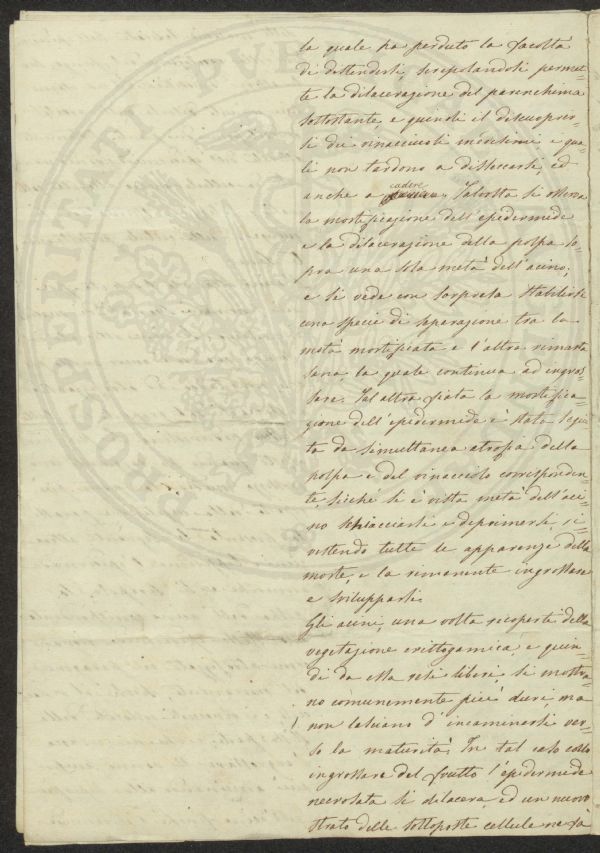 la quale ha perduto la facoltà
di distendersi, screpolandosi permet-
te la dilacerazione del parenchima
sottostante, e quindi il discuoprir-
si dei vinacciuoli medesimi e qua-
li non tardono a distaccarsi, ed
anche a cadere. Talvolta si osserva
la mortificazione dell'epidermide
e la dilacerazione della polpa so-
pra una sola metà dell'acino;
e si vede con sorpresa stabilirsi
una specie di separazione tra la
metà mortificata e l'altra rimasta
sana, la quale continua ad ingros-
sare. Tal altra fiata la mortifica-
zione dell'epidermide è stata segui-
ta da simultanea atrofia della
polpa e del vinacciolo corrisponden-
te, sicché si è vista metà dell'aci-
no schiacciarsi e deprimersi, ri-
vestendo tutte le apparenze della
morte, e la rimanente ingrossare
e svilupparsi.
Gli acini, una volta ricoperti della
vegetazione crittogamica, e quin-
di da essa resi liberi, si mostra-
no comunemente più duri, ma
non lasciano d'incaminarsi ver-
so la maturità. In tal caso collo
ingrossare del frutto l'epidermide
necrosata si dilacera, ed un nuovo
strato delle sottoposte cellule ne fa
PROSPERITATI PUBL